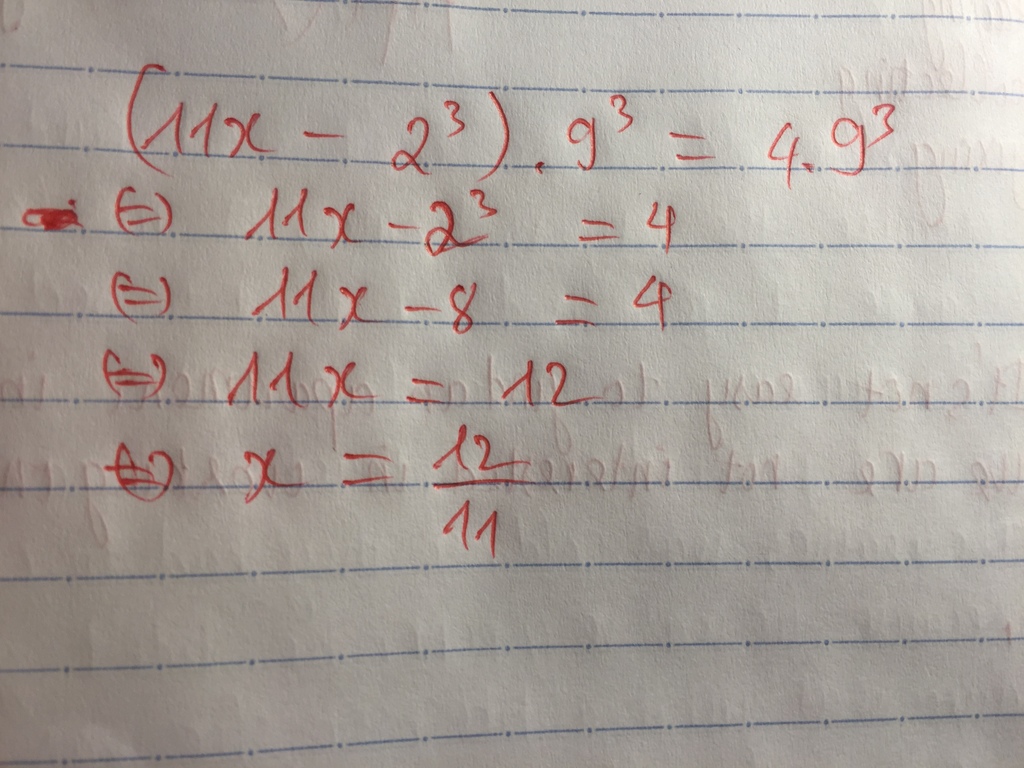 (11x - 2³) . 9³ = 4.9³
⇔ 11x - 2³ = 4
⇔ 11x - 8 = 4
⇔ 11x = 12
⇔ x = 12/11